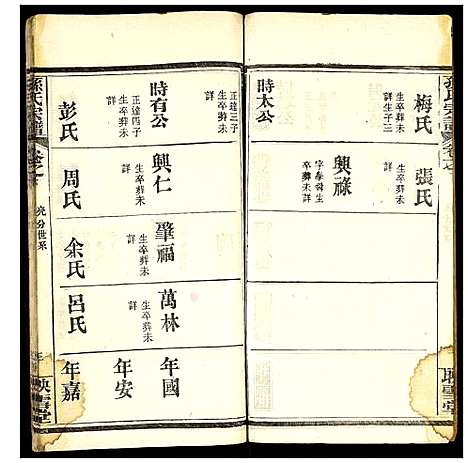 孫氏宗譜
卷之七
映雪堂
梅氏
生子三
張氏
時太公
正達三子
生卒葬未
詳
興祿
字學發生
卒葬未
詳
時有公
正達四子
生卒葬未
詳
興仁
生卒葬未
詳
肇福
生卒葬未
詳
萬林
生卒葬未
詳
年國
年安
彭氏
周氏
余氏
呂氏
年嘉
孫氏宗譜
卷之七
亮分世系
映雪堂